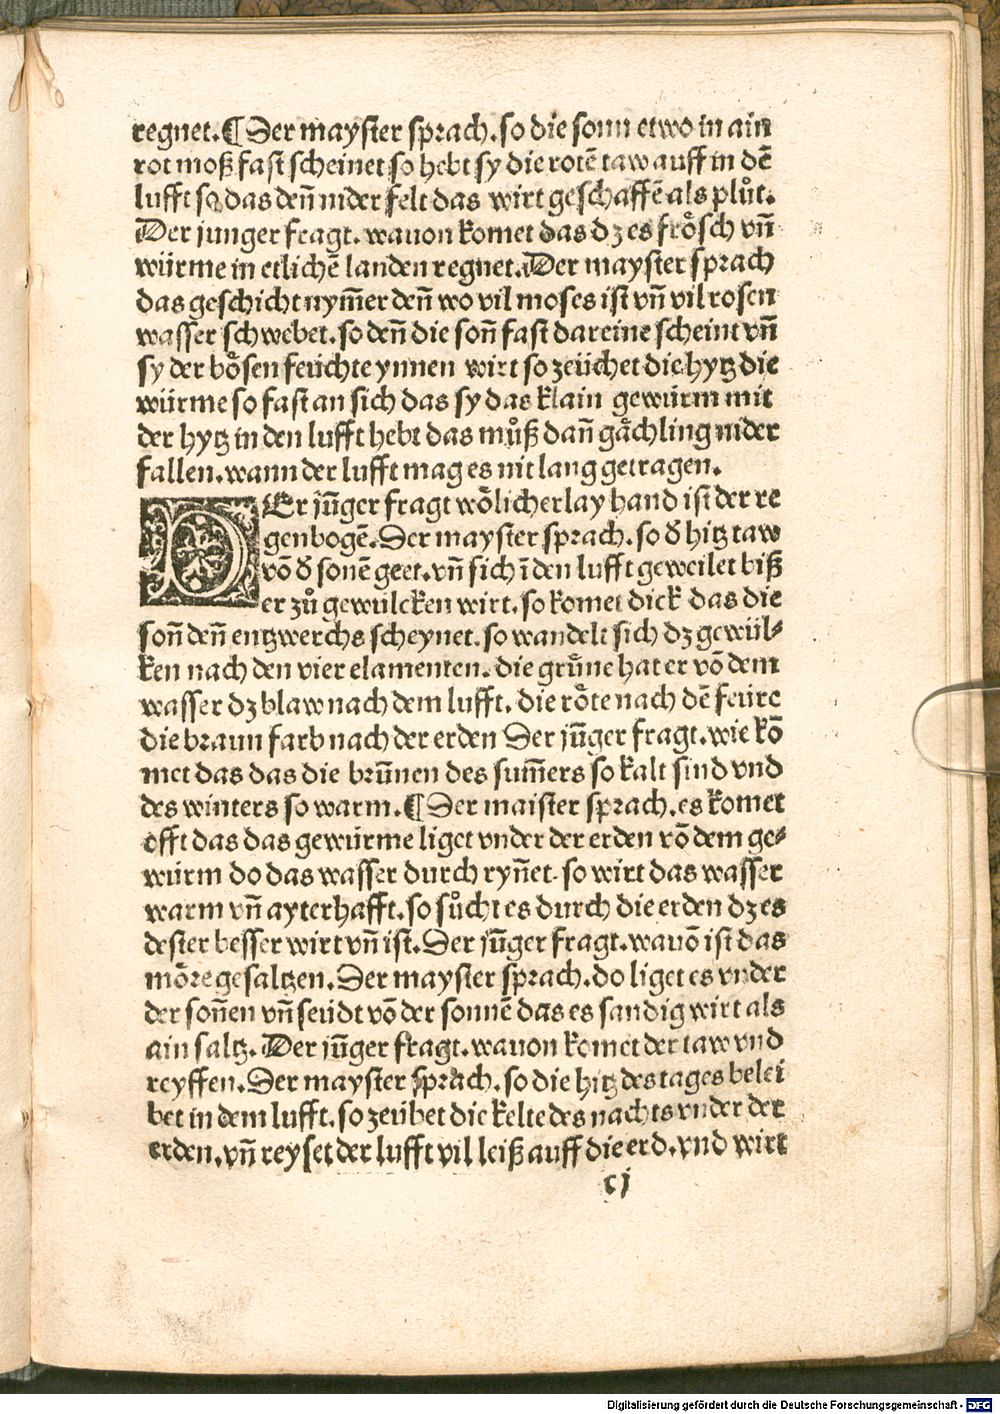 regnet. ¶ Der mayster sprach. so die sonn etwo in ain
rot moß fast scheinet so hebt sy die rotē taw auff in dē
lufft so das deñ nider felt das wirt geschaffē als plůt.
Der junger fragt. wauon komet das dz es frösch vñ
würme in etlichē landen regnet. Der mayster sprach
das geschicht nym̄er deñ wo vil moses ist vñ vil rosen
wasser schwebet. so deñ die soñ fast dareine scheint vñ
sy der bösen feüchte ynnen wirt so zeüchet die hytz die
würme so fast an sich das sy das klain gewürm mit
der hytz in den lufft hebt das můß dañ gächling nider
fallen. wann der lufft mag es nit lang getragen.
DEr jūger fragt wölicherlay hand ist der re
genbogē. Der mayster sprach. so d̕ hitz taw
vō d̕ sonē geet. vñ sich ī den lufft geweilet biß
er zů gewulcken wirt. so komet dick das die
soñ deñ entzwerchs scheynet. so wandelt sich dz gewül⸗
ken nach den vier elamenten. die grüne hat er vō dem
wasser dz blaw nach dem lufft. die röte nach dē feüre
die braun farb nach der erden Der jūger fragt. wie kō
met das das die brūnen des sum̄ers so kalt sind vnd
des winters so warm. ¶ Der maister sprach. es komet
offt das das gewürme liget vnder der erden vō dem ge⸗
würm do das wasser durch ryn̄et. so wirt das wasser
warm vñ ayterhafft. so sůcht es durch die erden dz es
dester besser wirt vñ ist. Der jūger fragt. wauō ist das
möre gesaltzen. Der mayster sprach. do liget es vnder
der soñen vñ seüdt vō der sonnē das es sandig wirt als
ain saltz. Der jūger fragt. wauon komet der taw vnd
reyffen. Der mayster sprach. so die hitz des tages belei
bet in dem lufft. so zeübet die kelte des nachts vnder der
erden. vñ reyset der lufft vil leiß auff die erd. vnd wirt
cj
Digitalisierung gefördert durch die Deutsche Forschungsgemeinschaft - DFG